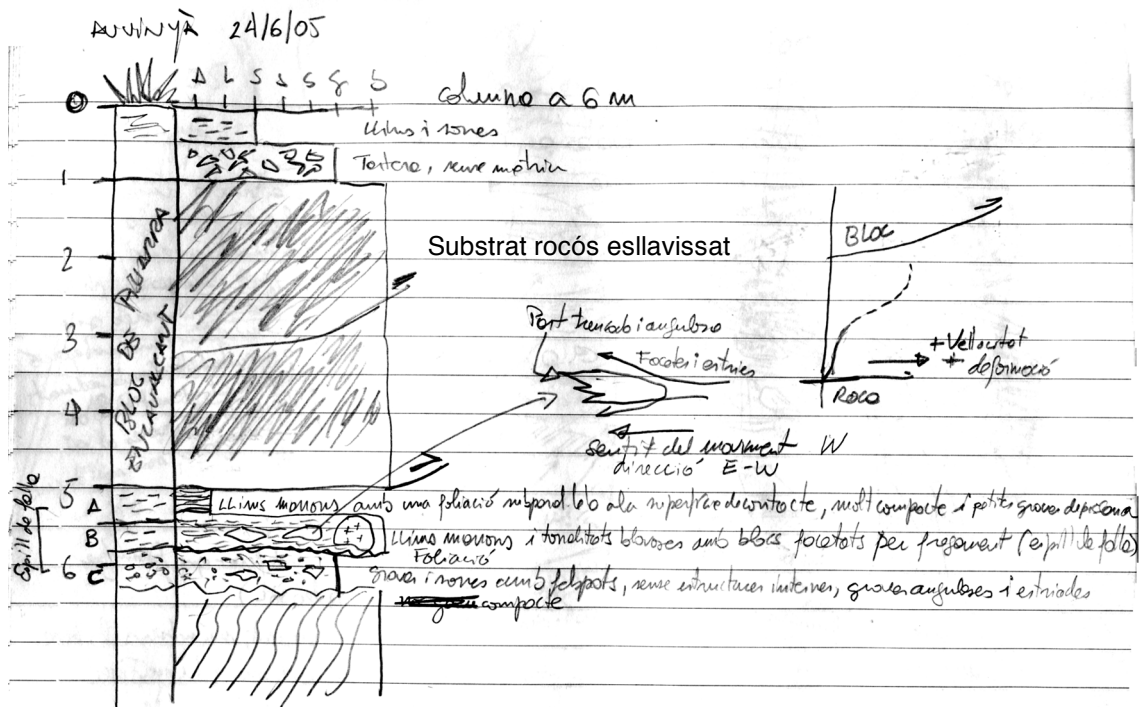 ANVINYÀ 24/6/05
0
A L S S S G B
columna a 6 m
Llims i sorres
1
Tartera, sense matriu
BLOC DE PISSARRA ENCAVALCANT
2
Substrat rocós esllavissat
BLOC
3
Part trencada i angulosa
Facetes i estries
+ Vellocitat
+ deformació
ROCA
4
Sentit del moviment W
direcció E-W
5
A
Llims marrons amb una foliació subparal·lela a la superfície de contacte, molt compacte i petites graves de pissarra
Espill de falla
B
Llims marrons i tonalitats blavoses amb blocs facetats per fregament (espill de falla)
Foliació
6
C
Grava i sorres amb felspats, sense estructures internes, graves anguloses i estriades
compacte